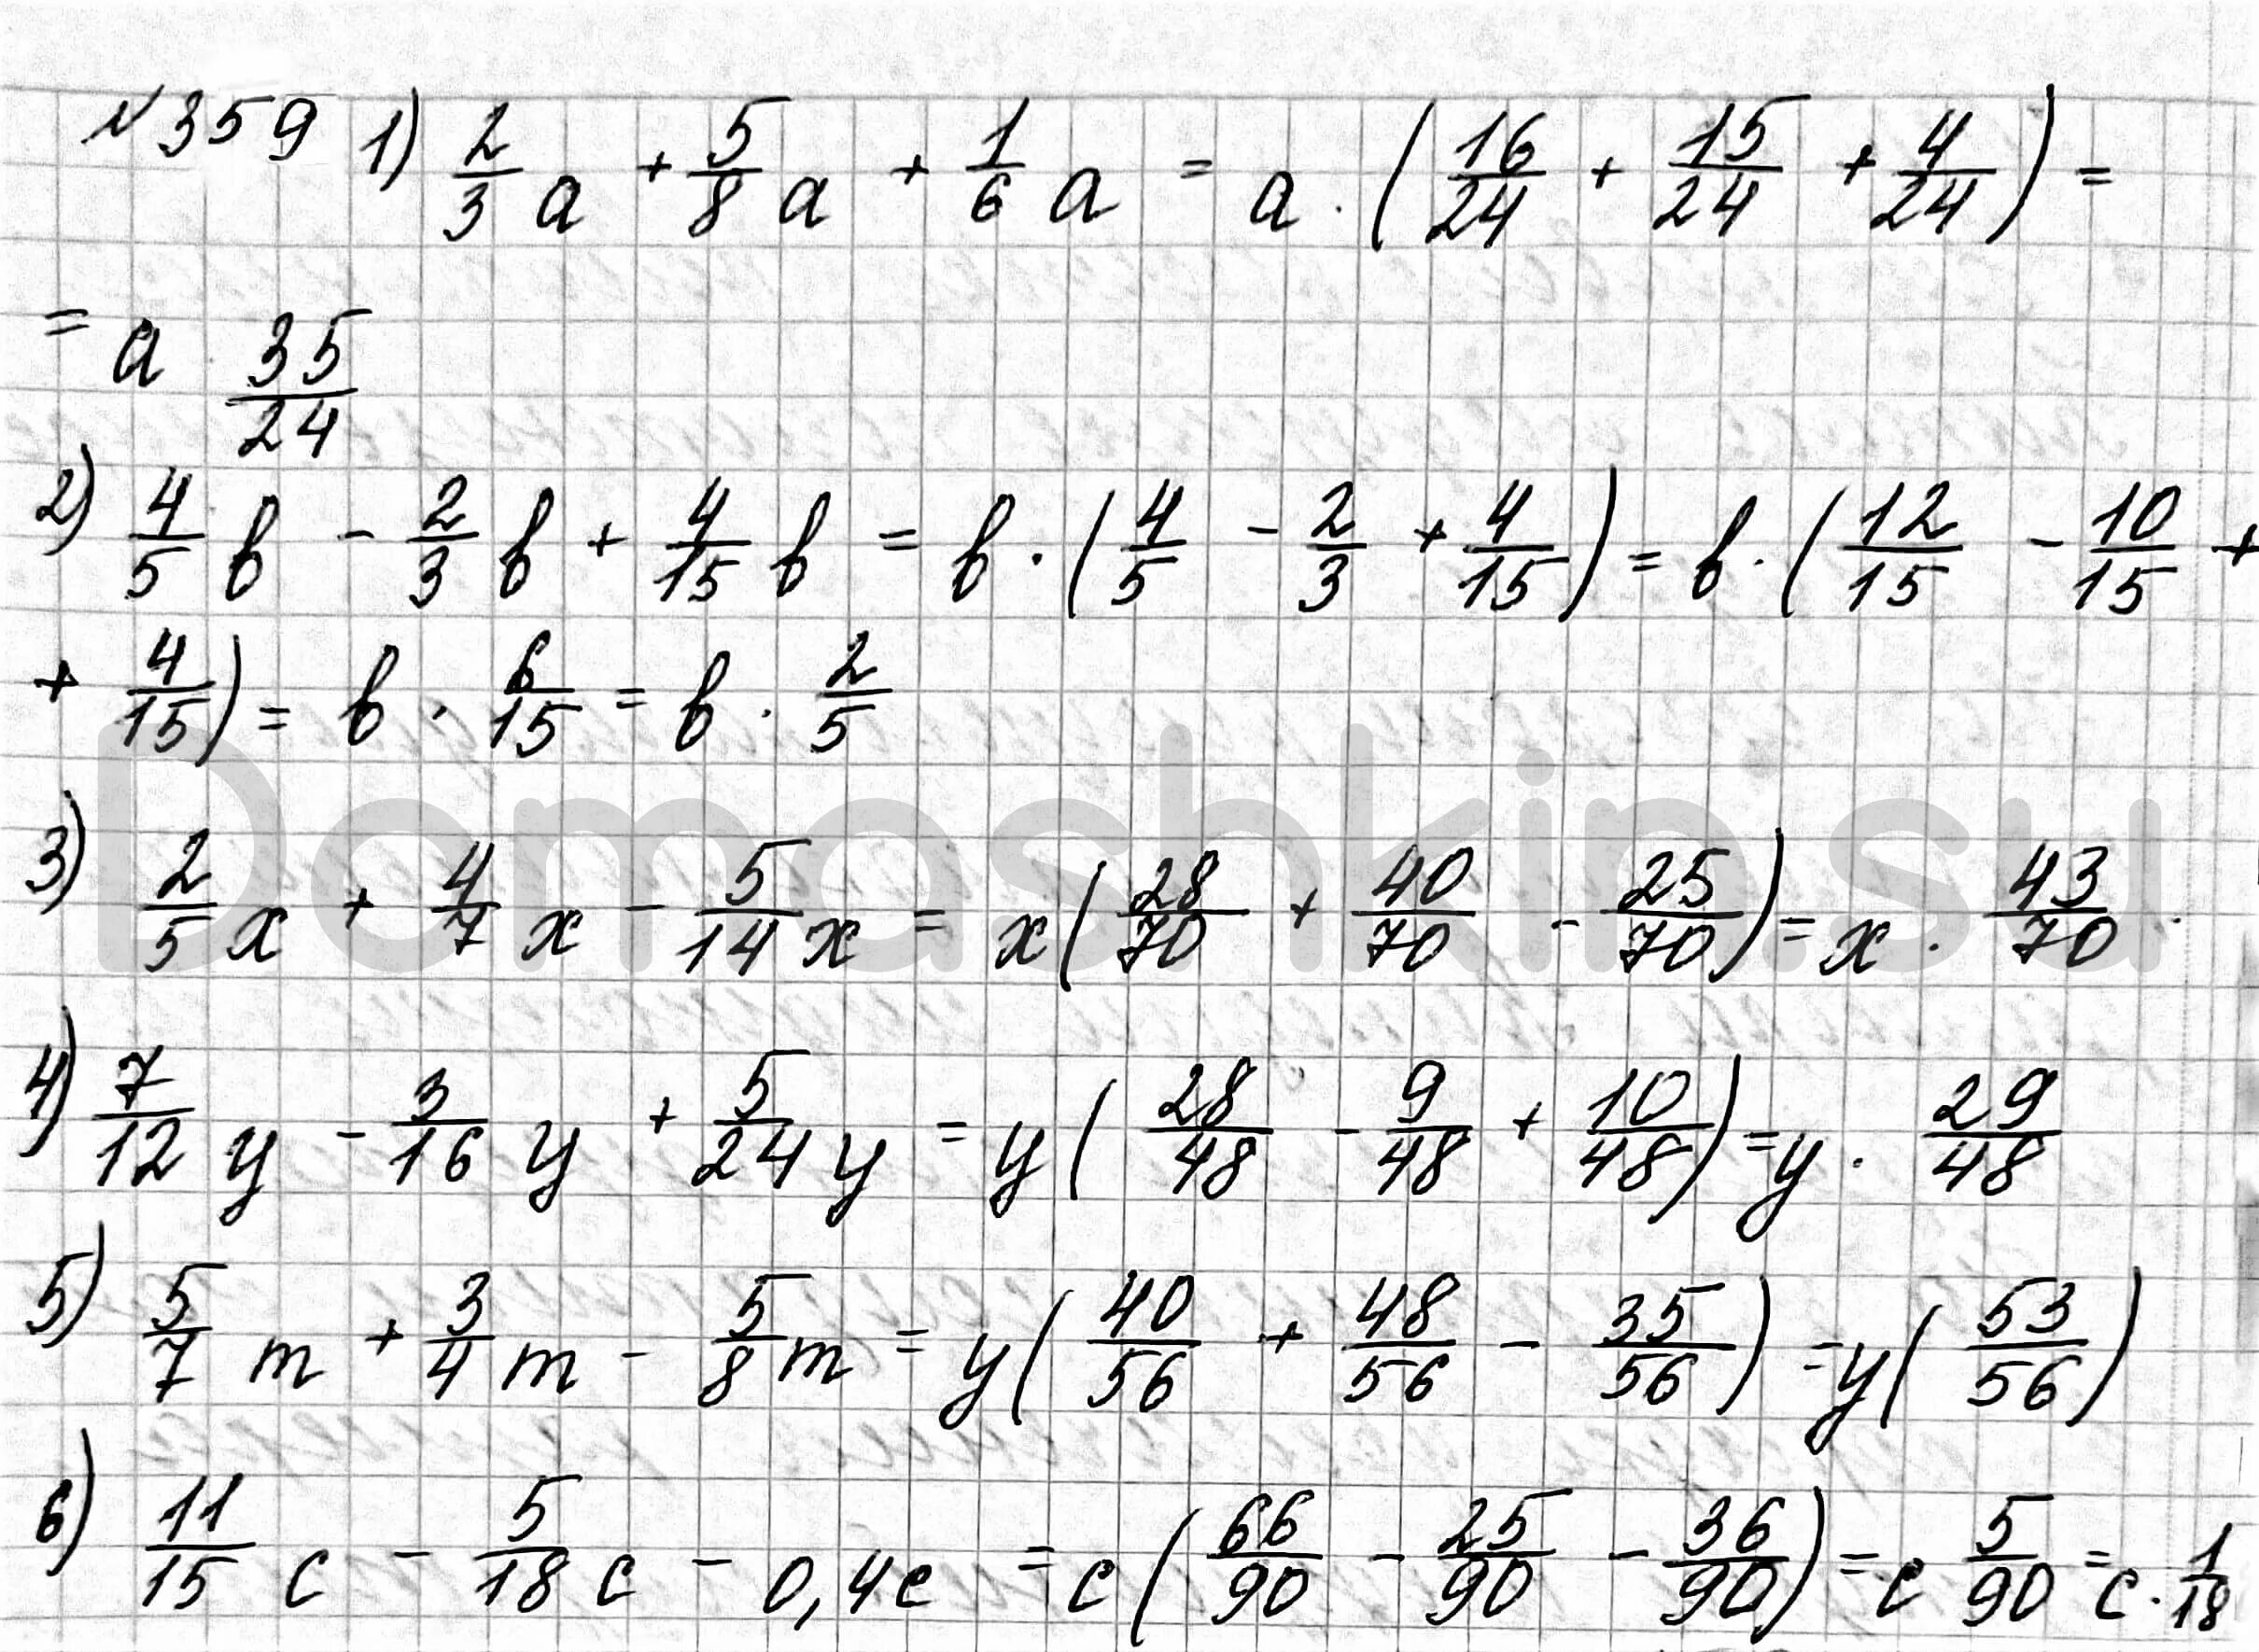 №359 1) 2/3 a + 5/8 a + 1/6 a = a · (16/24 + 15/24 + 4/24) =
= a · 35/24
2) 4/5 b - 2/3 b + 4/15 b = b · (4/5 - 2/3 + 4/15) = b · (12/15 - 10/15 +
+ 4/15) = b · 6/15 = b · 2/5
Domashkin.su
3) 2/5 x + 4/7 x - 5/14 x = x (28/70 + 40/70 - 25/70) = x · 43/70
4) 7/12 y - 3/16 y + 5/24 y = y (28/48 - 9/48 + 10/48) = y · 29/48
5) 5/7 m + 3/4 m - 5/8 m = y (40/56 + 48/56 - 35/56) = y (53/56)
6) 11/15 c - 5/18 c - 0,4c = c (66/90 - 25/90 - 36/90) = c 5/90 = c · 1/18